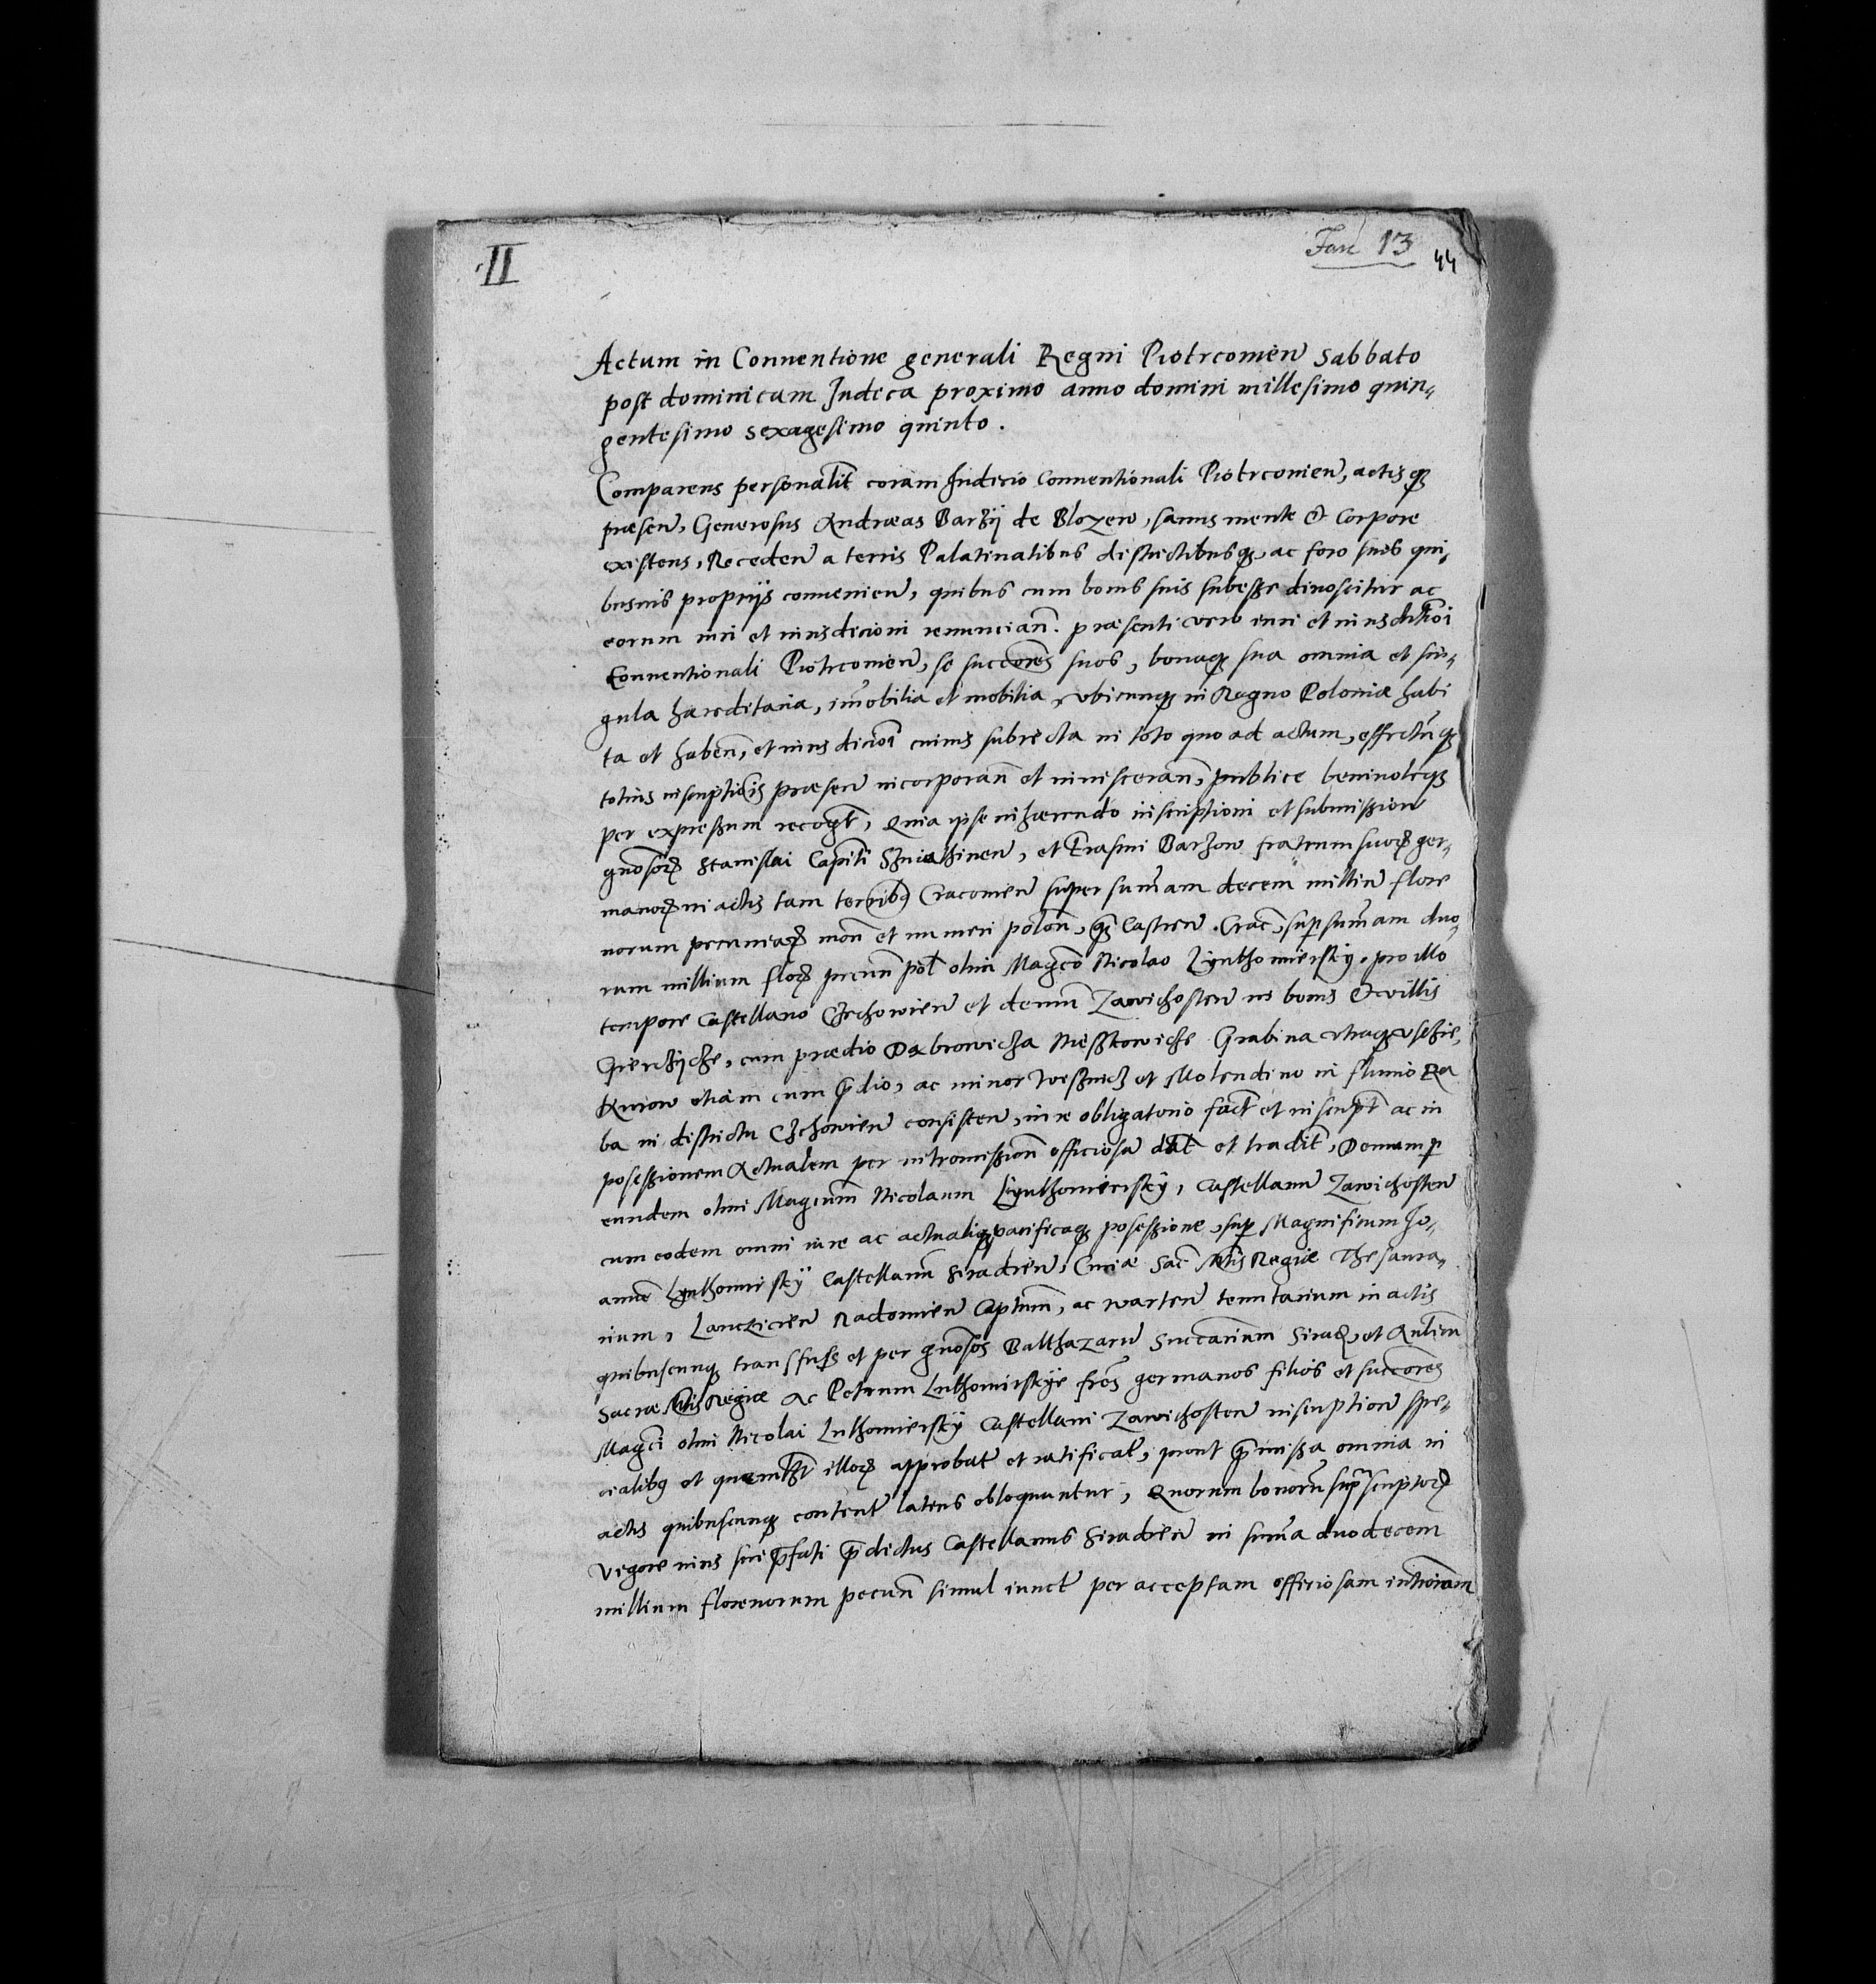 II
Fasc 13 44
Actum in Conventione generali Regni Piotrcovien̄ Sabbato
post dominicam Judica proximo anno domini millesimo quin„
gentesimo sexagesimo quinto .
Comparens personalit̄ coram Judicio Conventionali Piotrcovien̄, actisq̨
præsen̄, Generosus Andræas Barzÿ de Blozew, sanus mente & Corpore
existens, Receden̄ a terris Palatinatibus districtibusq̨, ac foro suis qui„
busuis proprÿs convenien̄, quibus cum bonis suis subesse dinoscitur ac
eorum iuri et iurisdicioni renuncian̄. præsenti vero iuri et iurisdit̄ioi
Conventionali Piotrcovien̄, se succores̄ suos, bonaq̨ sua omnia et sin„
gula hæreditaria, im̄obilia et mobilia, vbicunq̨ in Regno Poloniæ habi
ta et haben̄, et iurisdicioī cuius subiecta in toto quo ad actum, effectūq̨
totius inscriptiōis præsen̄ incorporan̄ et invisceran̄, publice benivoleq̨
per expressum recogt̄, Quia ipse inhærendo inscriptioni et submission̄
gnōsorꝝ Stanislai Capitī Szniathinen̄, et Erasmi Barzow fratrum suorꝝ ger„
manorꝝ in actis tam terribꝯ Cracovien̄ super sum̄am decem milliū flore
norum pecuniarꝝ mon̄ et numeri polon̄, q̨ Castren̄ . Crac̄, sup̱ sum̄am duo„
rum millium florꝝ pecun̄ pol̄ olim Magc̄o Nicolao Lÿuthomiersky, pro illo
tempore Castellano Czchowien̄ et demū Zawichosten̄ in bonis & villis
Gierczÿcze, cum prædio Dąbrowicza Nieszkowicze Grabina
etiam cum p̄dio, ac minor Wesznicz et Molendino in fluuio Ra
ba in districtu Czchowien̄ consisten̄, iure obligatorio fact̄ et inscript̄ ac in
possessionem Actualem per intromission̄ officiosā dat̄ et tradit̄, Demum p̱
eundem olim Magcum̄ Nicolaum Lÿuthomiersky, Castellanū Zawichosten̄
cum eodem omni iure ac actualiq̨ pacificaq̨ possessione, sup̱ Magnificum Jo„
annē Luthomirskÿ Castellanū Siradien̄, Curiæ Sac̄ Mt̄is Regiæ Thesaura„
rium, Lanczicien̄ Radomien̄ Captūm, ac Warten̄ tenutarium in actis
quibuscunq̨ transfuss et per gnōsos Balthazarū Succarium Sirad, et
Sacræ Mt̄is Regiæ ac Petrum Luthomirskÿe frēs germanos filios et succores̄
Magci olim Nicolai Luthomierskÿ Castellani Zawichosten̄ inscription̄ spe„
cialibꝯ et illorꝝ approbat̄ et ratificat̄, prout p̄missa omnia in
actis quibuscunq̨ content̄ latius obloquuntur, Quorum bonorū sup̄scriptorꝝ
vigore iuris sui p̄fati p̄dictus Castellanus Siradien̄ in sum̄a duodecem
millium florenorum pecun̄ simul iunct̄ per acceptam officiosam introm̄